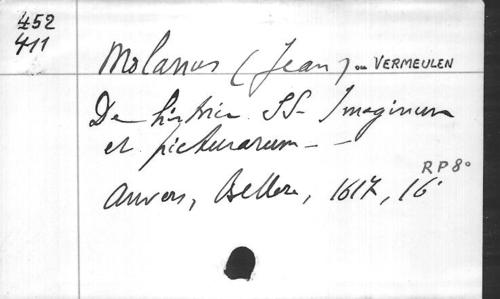 452
411
Molanus (Jean) ou VERMEULEN
De historia SS. Imaginum
et picturarum - -
RP 8°
Anvers, Bellere, 1617, 16°